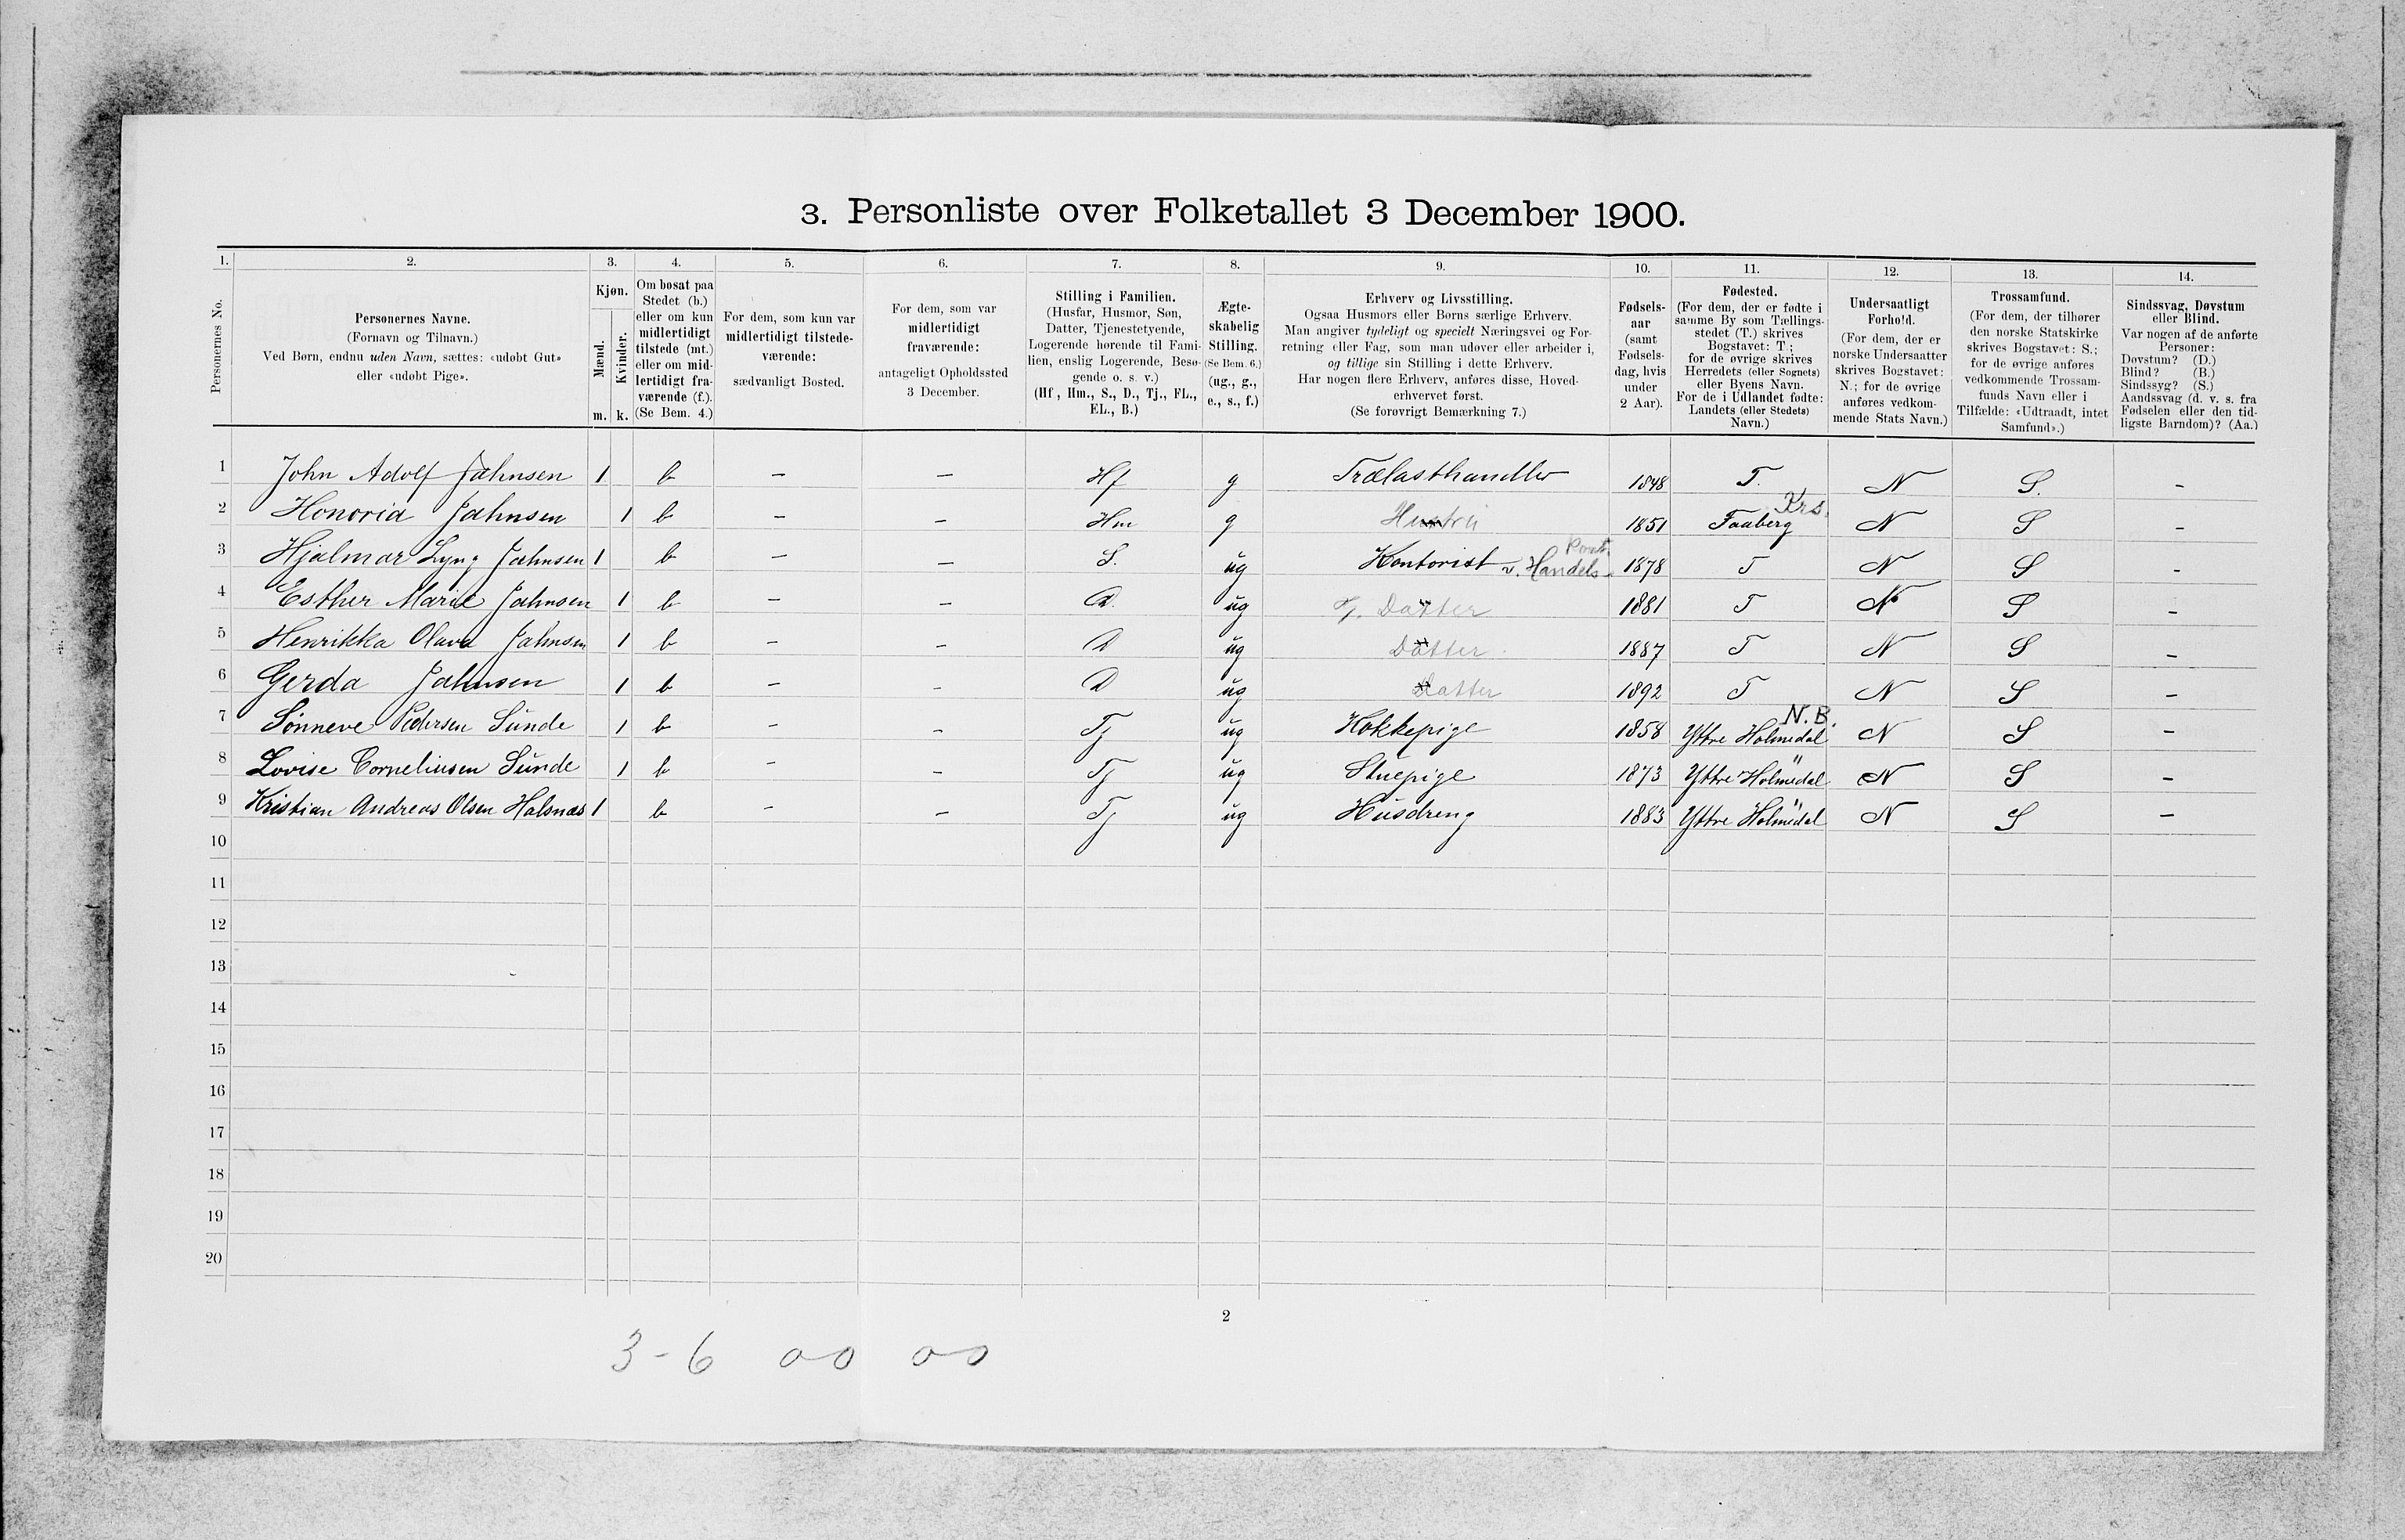 3. Personliste over Folketallet 3 December 1900.
1. 2. 3. 4. 5. 6. 7. 8. 9. 10. 11. 12. 13. 14.
Personernes No.
Personernes Navne.
(Fornavn og Tilnavn.)
Ved Børn, endnu uden Navn, sættes: «udøbt Gut»
eller «udøbt Pige».
Kjøn.
Mænd.
Kvinder.
m. k.
Om bosat paa
Stedet (b.)
eller om kun
midlertidigt
tilstede (mt.)
eller om mid-
lertidigt fra-
værende (f.).
(Se Bem. 4.)
For dem, som kun var
midlertidigt tilstede-
værende:
sædvanligt Bosted.
For dem, som var
midlertidigt
fraværende:
antageligt Opholdssted
3 December.
Stilling i Familien.
(Husfar, Husmor, Søn,
Datter, Tjenestetyende,
Logerende hørende til Fami-
lien, enslig Logerende, Besø-
gende o. s. v.)
(Hf., Hm., S., D., Tj., FL.,
EL., B.)
Ægte-
skabelig
Stilling.
(Se Bem. 6.)
(ug., g.,
e., s., f.)
Erhverv og Livsstilling.
Ogsaa Husmors eller Børns særlige Erhverv.
Man angiver tydeligt og specielt Næringsvei og For-
retning eller Fag, som man udøver eller arbeider i,
og tillige sin Stilling i dette Erhverv.
Har nogen flere Erhverv, anføres disse, Hoved-
erhvervet først.
(Se forøvrigt Bemærkning 7.)
Fødsels-
aar
(samt
Fødsels-
dag, hvis
under
2 Aar).
Fødested.
(For dem, der er fødte i
samme By som Tællings-
stedet (T.) skrives
Bogstavet: T;
for de øvrige skrives
Herredets (eller Sognets)
eller Byens Navn.
For de i Udlandet fødte:
Landets (eller Stedets)
Navn.)
Undersaatligt
Forhold.
(For dem, der er
norske Undersaatter
skrives Bogstavet:
N.; for de øvrige
anføres vedkom-
mende Stats Navn.)
Trossamfund.
(For dem, der tilhører
den norske Statskirke
skrives Bogstavet: S.;
for de øvrige anføres
vedkommende Trossam-
funds Navn eller i
Tilfælde: «Udtraadt, intet
Samfund».)
Sindssvag, Døvstum
eller Blind.
Var nogen af de anførte
Personer:
Døvstum? (D.)
Blind? (B.)
Sindssyg? (S.)
Aandssvag (d. v. s. fra
Fødselen eller den tid-
ligste Barndom)? (Aa.)
1 John Adolf Jahnsen 1 b – – Hf g Trælasthandler 1848 T. N S. –
Krs.
2 Honoria Jahnsen 1 b – – Hm g Hustru 1851 Faaberg N S –
3 Hjalmar Lyng Jahnsen 1 b – – S. ug Kontorist v. Handels 1878 T N S –
4 Esther Marie Jahnsen 1 b – – D. ug Datter 1881 T N S –
5 Henrikka Olava Jahnsen 1 b – – D ug Datter 1887 T N S –
6 Gerda Jahnsen 1 b – – D ug Datter 1892 T N S –
N.B.
7 Sønneve Pedersen Sunde 1 b – – Tj ug Kokkepige 1858 Yttre Holmedal N S –
8 Lovise Corneliusen Sunde 1 b – – Tj ug Stuepige 1873 Yttre Holmedal N S –
9 Kristian Andreas Olsen Halsnæs 1 b – – Tj ug Husdreng 1883 Yttre Holmedal N S –
10
11
12
13
14
15
16
17
18
19
20
2
3-6 00 00